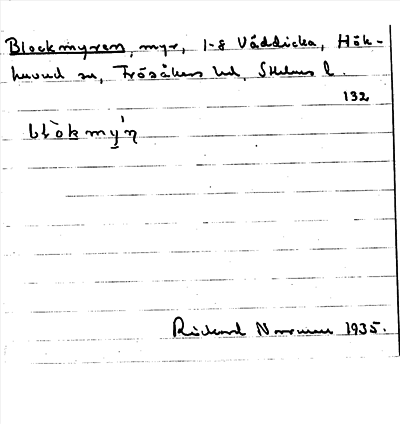 Blockmyren, myr, 1-8 Väddicka, Hök-
huvud sn, Frösåkers hd, Sthlms l.
132
blòkmy̠´n
Rickard Norrman 1935.